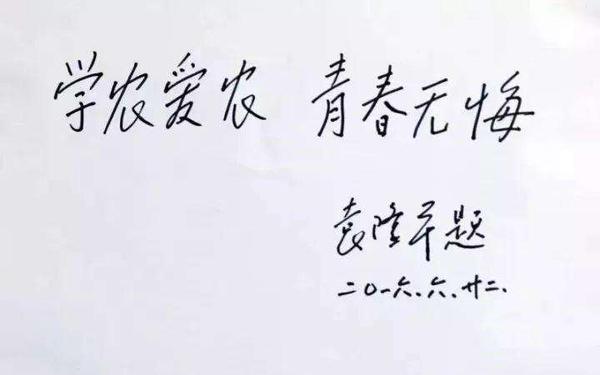 学农爱农 青春无悔
袁隆平题
二〇一六.六.廿二.